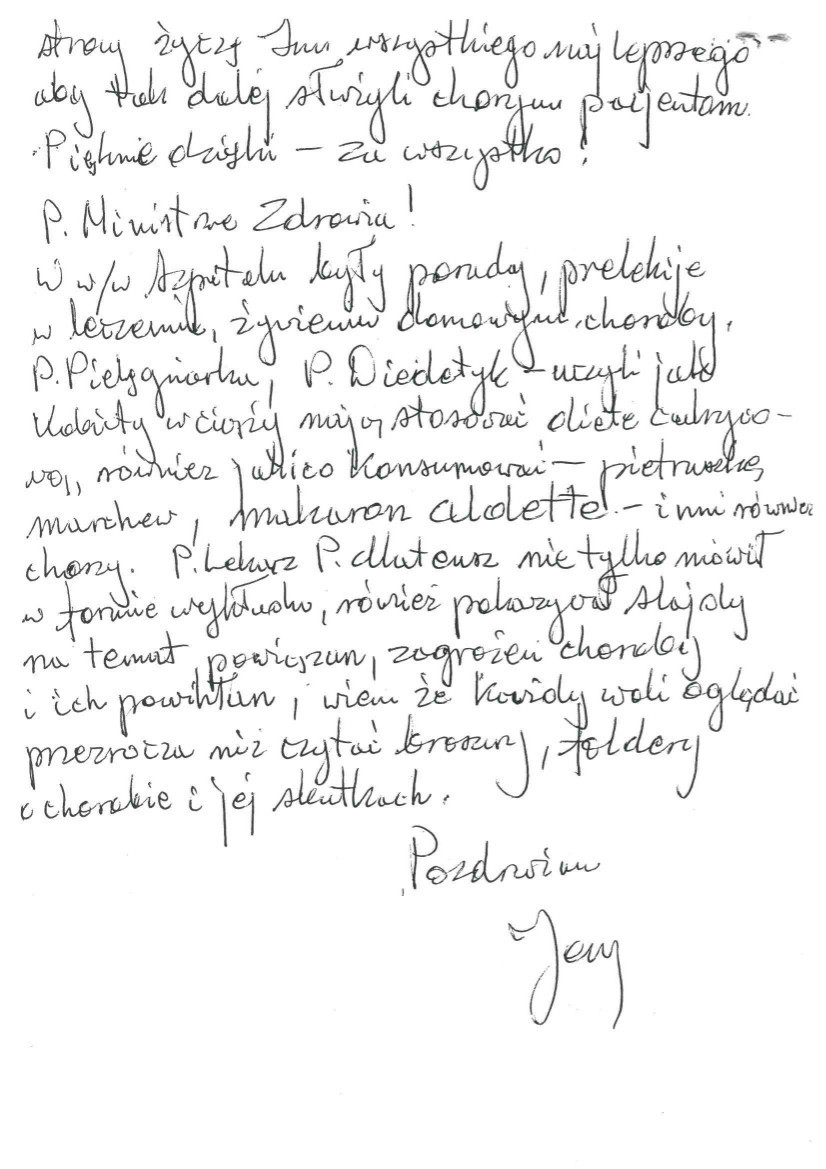 strony życzę Im wszystkiego najlepszego
aby tak dalej służyli chorym pacjentom.
Pięknie dzięki – za wszystko!
P. Ministrze Zdrowia!
W w/w Szpitalu były porady, prelekcje
w leczeniu, żywieniu domowym, choroby.
P. Pielęgniarka, P. Diedetyk – uczyli jak
Kobiety w ciąży mają stosować dietę cukrzyco-
wą, również jak i co konsumować – pietruszkę,
marchew, makaron aldette – i inni również
chorzy. P. Lekarz P. Mateusz nie tylko mówił
w formie wykładu, również pokazywał slajdy
na temat powiązan, zagrożeń choroby
i ich powikłan, wiem że każdy woli oglądać
przezrocza niż czytać broszury, foldery
o chorobie i jej skutkach.
Pozdrawiam
Jerzy